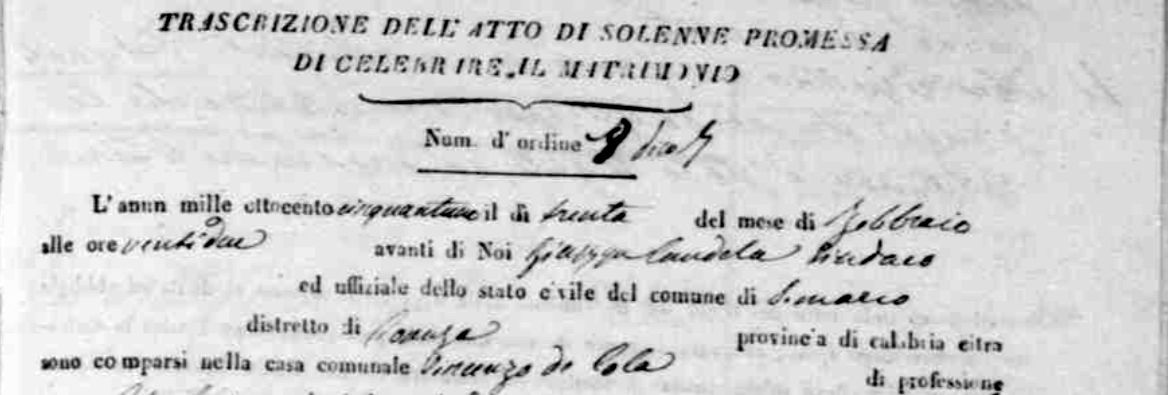 TRASCRIZIONE DELL' ATTO DI SOLENNE PROMESSA
DI CELEBRARE IL MATRIMONIO
Num. d' ordine
L' anno mille ottocento cinquantuno il dì trenta del mese di Febbraio
alle ore ventidue avanti di Noi Candela Sindaco
ed uffiziale dello stato civile del comune di
distretto di Cosenza provincia di calabria citra
sono comparsi nella casa comunale Vincenzo di Cola
di professione